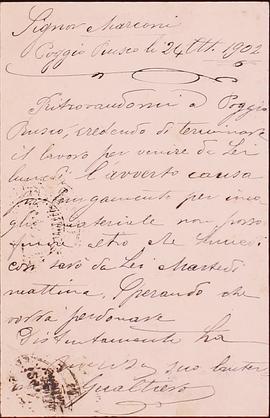 Signor Marconi
Poggio Rusco li 24 Ott. 1902
Ritrovandomi a Poggio
Rusco, credendo di terminare
il lavoro per venire da Lei
lunedi l'avverto causa
per
materiale non posso
altro che lunedi
cosi sarò da Lei Martedi
mattina. Sperando che
vorrà perdonare
Distintamente La
suo
Gualtiero